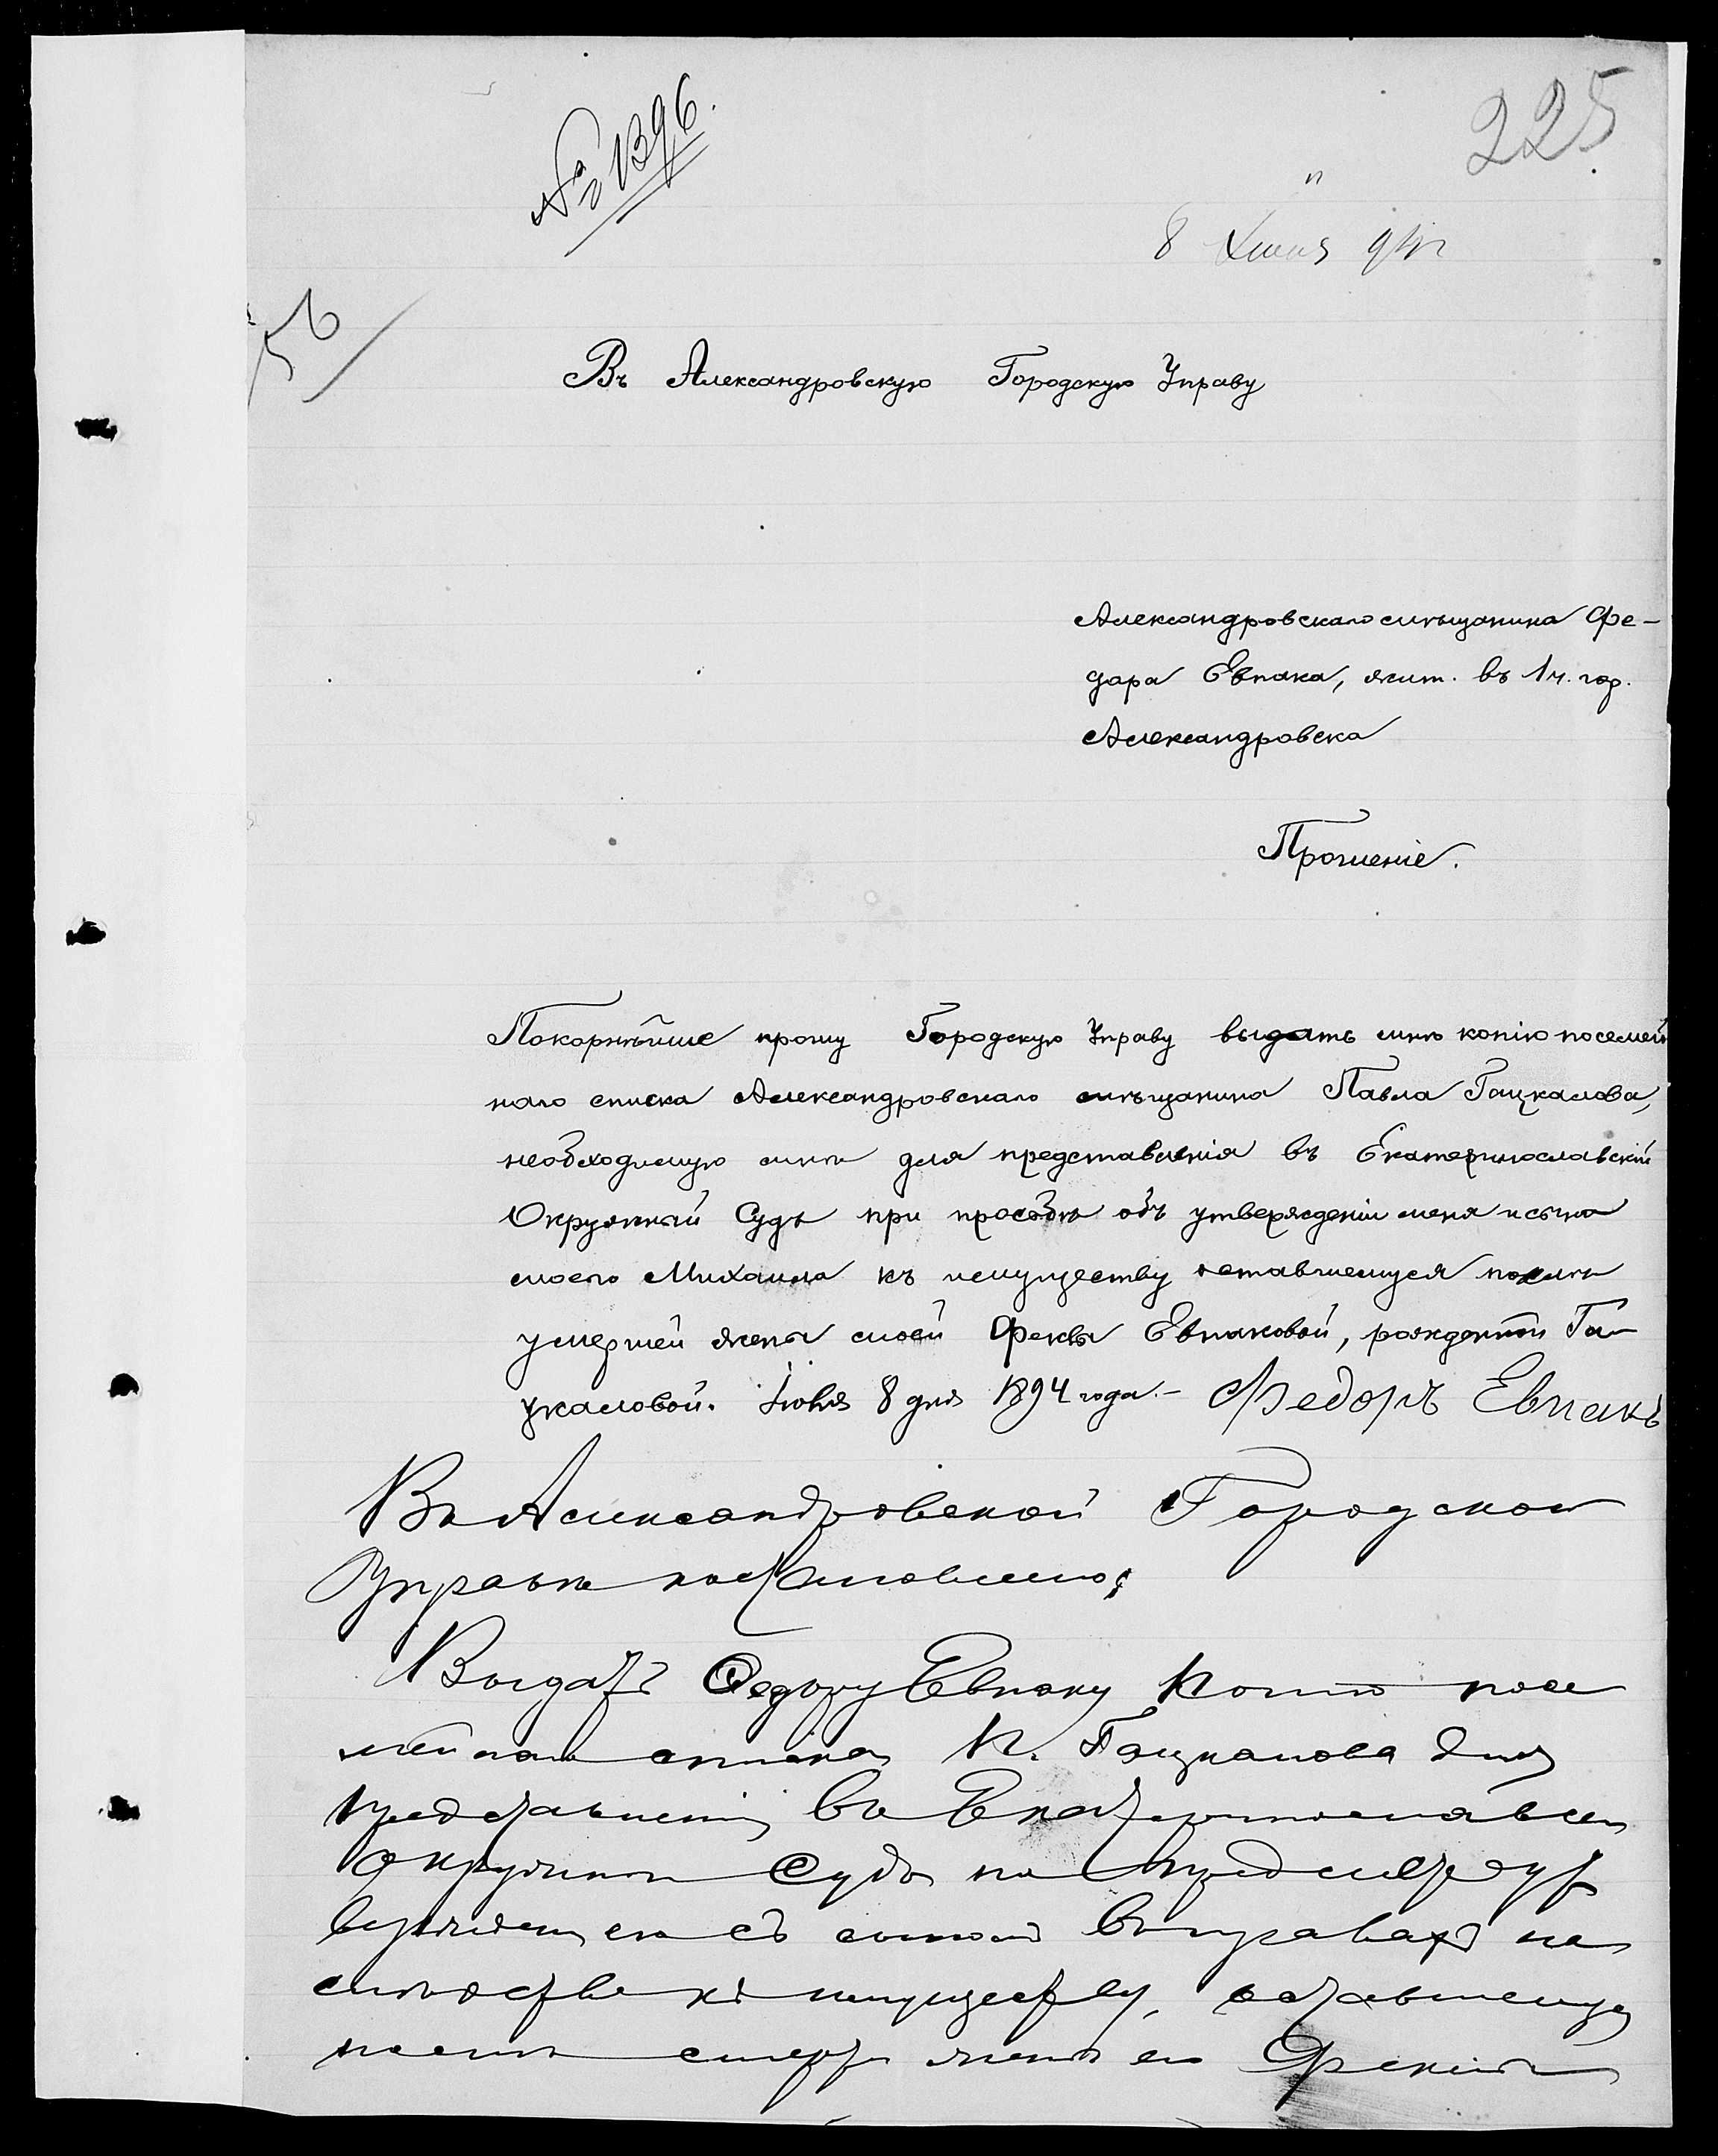 № 1396.
225
8 Июня 94 г
56
Въ Александровскую Городскую Управу
Александровскаго мѣщанина Фе-
дора Евпака, жит. въ 1 ч. гор.
Александровска
Прошеніе.
Покорнѣйше прошу Городскую Управу выдать мнѣ копію посемей
наго списка Александровскаго мѣщанина Павла Гацкалова,
необходимую мнѣ для представленія въ Екатеринославскій
Окружный Судъ при просьбѣ объ утвержденіи меня и сына
моего Михаила къ имуществу оставшемуся послѣ
умершей жены моей Феклы Евпаковой, рожденной Га-
цкаловой. Іюня 8 дня 1894 года.- Федоръ Евпакъ
Въ Александровской Городской
Управѣ постановлено:
Выдать Федору Евпаку копію посе
мейнаго списка П. Гацкалова для
представленія въ Екатеринославск
Окружной Судъ на предметъ ут
вержденія его съ сыномъ въ правахъ на
слѣдства къ имуществу, оставшемуся
послѣ смерти жены его Феклы